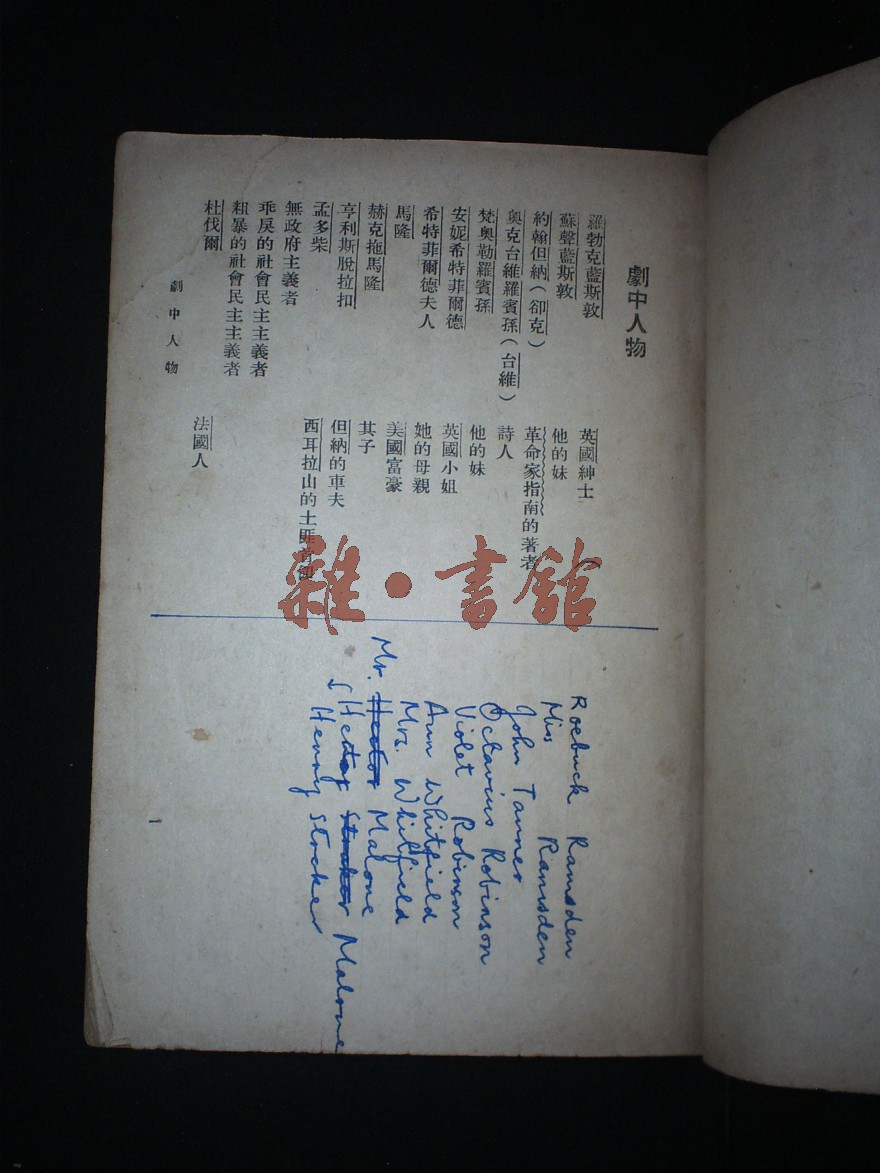 劇中人物
羅勃克藍斯敦 英國紳士
蘇聲藍斯敦 他的妹
約翰但納（卻克） 革命家指南的著者
奧克台維羅賓孫（台維） 詩人
梵奧勒羅賓孫 他的妹
安妮希特菲爾德 英國小姐
希特菲爾德夫人 她的母親
馬隆 美國富豪
赫克拖馬隆 其子
亨利斯脫拉扣 但納的車夫
孟多柴 西耳拉山的土匪首領
無政府主義者
乖戾的社會民主主義者
粗暴的社會民主主義者
杜伐爾 法國人
劇中人物
1
Roebuck Ramsden
Miss Ramsden
John Tanner
Octavius Robinson
Violet Robinson
Ann Whitfield
Mrs. Whitfield
Mr. Hector Malone
Hector Straker Malone
Henry Straker
雜·書館